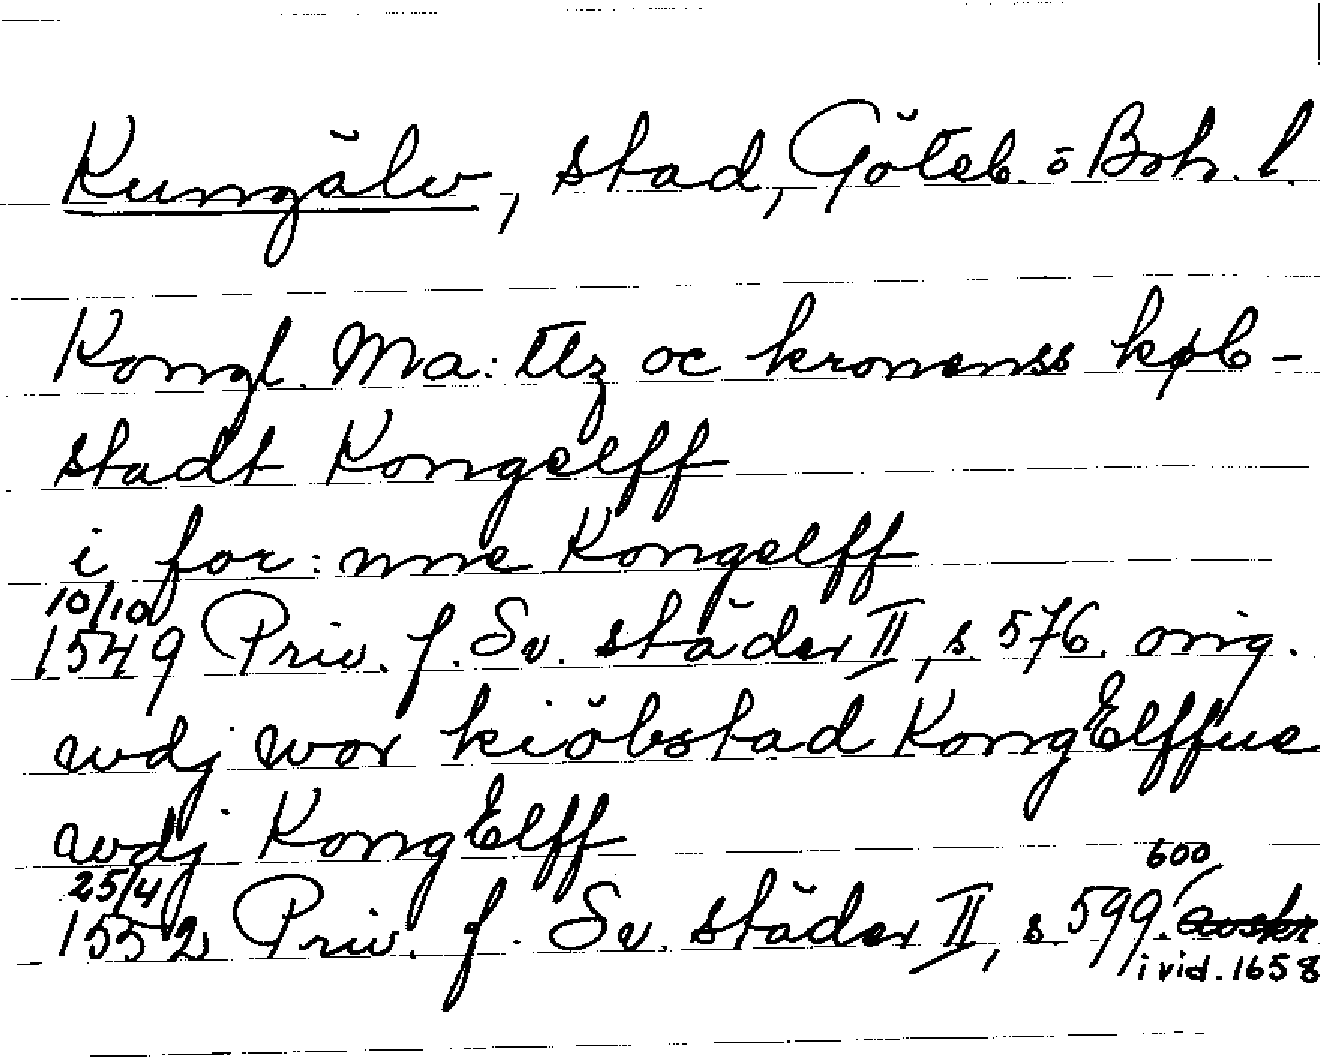 Kungälv, stad, Göteb. o Boh. l.
Kongl. Ma: ttz oc kronenss køb-
stadt Kongelff
i for: nne Kongelff
10/10
1549 Priv. f. Sv. städer II, s 576. orig.
wdj wor kiöbstad KongElffue
wdj KongElff
25/4 600
1552 Priv. f. Sv. städer II, s 599. avskr
i vid. 1658